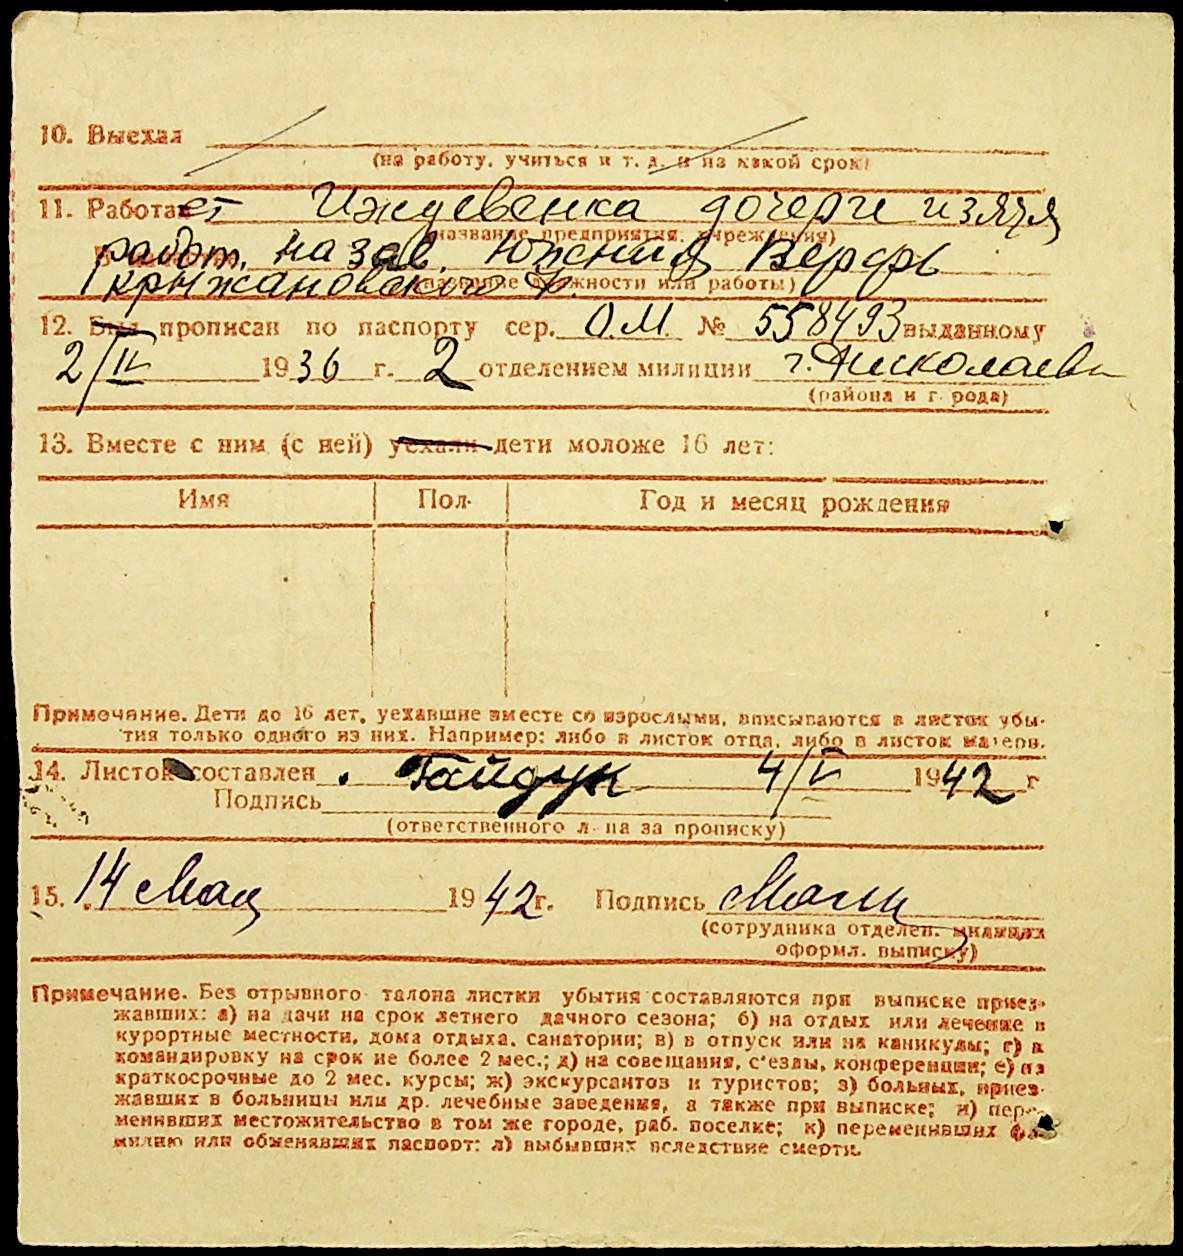 10. Выехал
(на работу, учиться и т. д. и на какой срок)
11. Работает Иждевенка дочери и зятя
(название предприятия, учреждения)
работ. на зав. Южний Верфь
Крыжановского Ф.
(название должности или работы)
12. Был прописан по паспорту сер. О.М. № 558493 выданному
2/IV 1936 г. 2 отделением милиции г. Николаева
(района и г рода)
13. Вместе с ним (с ней) уехали дети моложе 16 лет:
Имя Пол. Год и месяц рождения
Примечание. Дети до 16 лет, уехавшие вместе со взрослыми, вписываются в листок убы-
тия только одного из них. Например: либо в листок отца, либо в листок матери.
14. Листок составлен Гайдук 4/V 1942 г
Подпись
(ответственного л на за прописку)
15. 14 Мая 1942 г. Подпись
(сотрудника отделен. милиции
оформл. выписку)
Примечание. Без отрывного талона листки убытия составляются при выписке приез-
жавших: а) на дачи на срок летнего дачного сезона; б) на отдых или лечение в
курортные местности, дома отдыха, санатории; в) в отпуск или на каникулы; г) в
командировку на срок не более 2 мес.; д) на совещания, с'езды, конференции; е) на
краткосрочные до 2 мес. курсы; ж) экскурсантов и туристов; з) больных, приез-
жавших в больницы или др. лечебные заведения, а также при выписке; и) пере-
менивших местожительство в том же городе, раб. поселке; к) переменивших фа-
милию или обменявших паспорт; л) выбывших вследствие смерти.